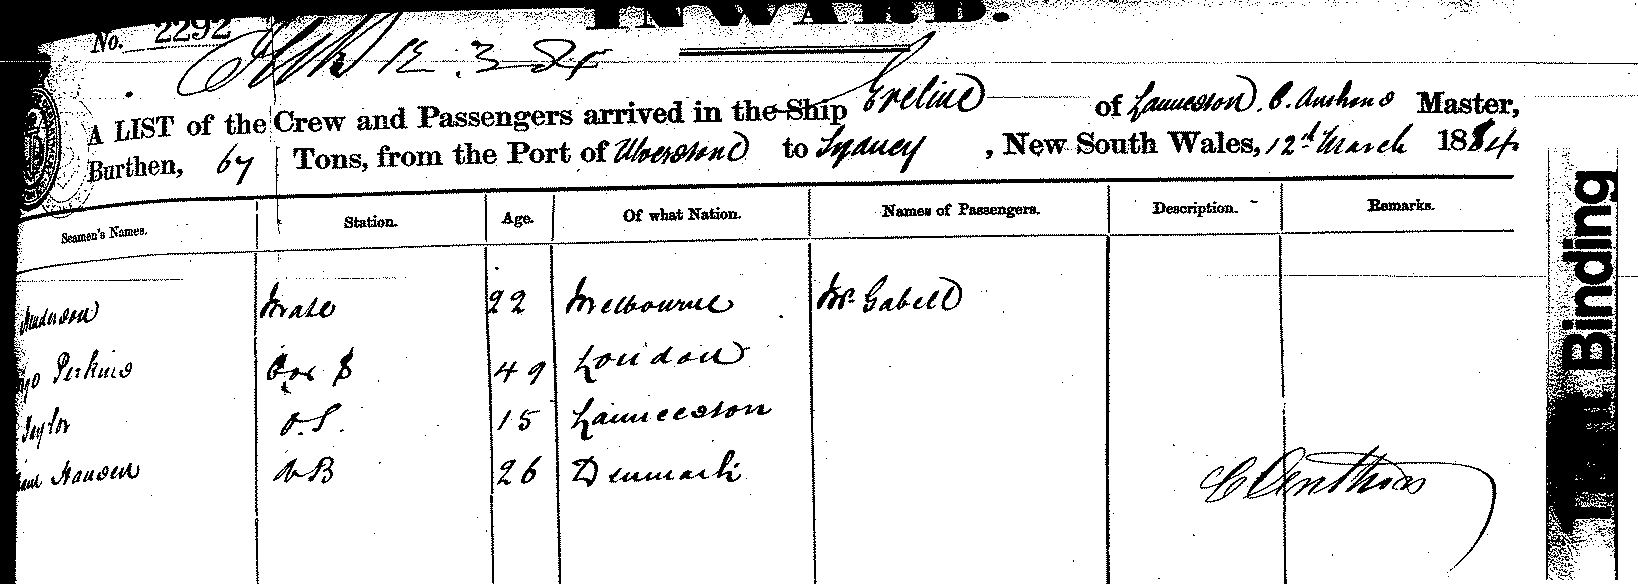 INWARD.
No. 2292
12.3.84
A LIST of the Crew and Passengers arrived in the Ship Eveline of Launceston, C. Anthons Master,
Burthen, 67 Tons, from the Port of Ulverstone to Sydney, New South Wales, 12th March 1884
Seamen's Names. Station. Age. Of what Nation. Names of Passengers. Description. Remarks.
Anderson Mate 22 Melbourne Mr Gabell
Perkins 49 London
Taylor O.S. 15 Launceston
Hansen AB 26 Denmark
C Anthons
Binding